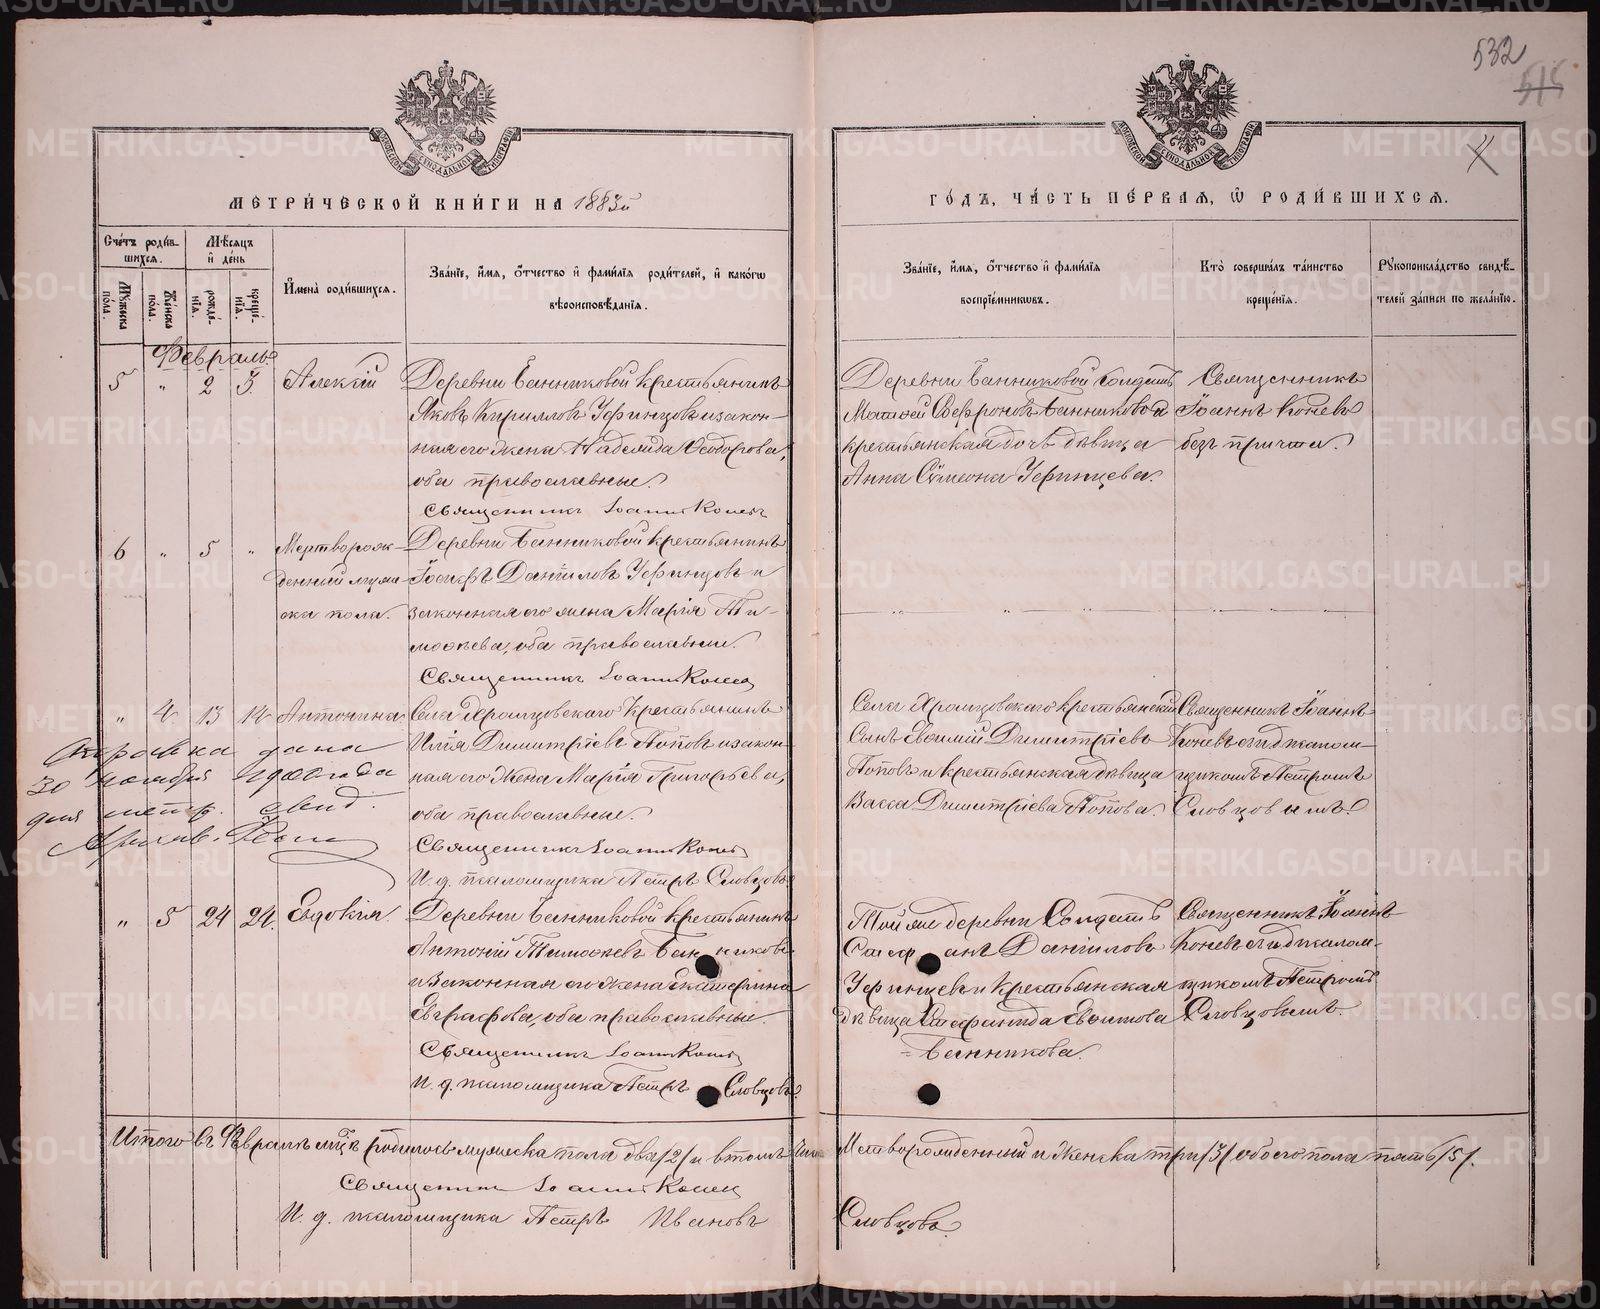 532
515
4
МОСКОВСКОЙ СУНОДАЛЬНОЙ ТИПОГРАФІИ
МОСКОВСКОЙ СУНОДАЛЬНОЙ ТИПОГРАФІИ
МЕТРИ́ЧЕСКОЙ КНИ́ГИ НА 1883й
ГО́ДЪ, ЧА́СТЬ ПЕ́РВАЯ, Ѽ РОДИ́ВШИХСЯ.
Сче́тъ роди́в-
шихся.
Мѣ́сяцъ
и де́нь
Му́жеска пола.
Же́нска пола.
рожде́-
нія.
креще́-
нія.
Имена̀ роди́вшихся.
Зва́ніе, и́мя, о́тчество и фами́лія роди́телей, и како́гѡ
вѣроисповѣ́данія.
Зва́ніе, и́мя, о́тчество и фами́лія
воспріе́мниковъ.
Кто̀ соверша́лъ та́инство
креще́нія.
Рукоприкла́дство свидѣ́-
телей за́писи по жела́нію.
Февраль
5 " 2 3 Алексій
Деревни Банниковой крестьянинъ
Яковъ Кирилловъ Уфинцовъ и закон-
ная его жена Надежда Ѳеодорова,
оба православные.
Священникъ Іоаннъ Коневъ
Деревни Банниковой солдатъ
Матѳей Софроновъ Банниковъ и
крестьянская дочь дѣвица
Анна Сѵмеона Уфинцева.
Священникъ
Іоаннъ Коневъ
безъ причта.
6 " 5 " Мертворож-
денный муже-
ска пола.
Деревни Банниковой крестьянинъ
Іосифъ Даніиловъ Уфинцовъ и
законная его жена Марія Ти-
моѳеева, оба православные.
Священникъ Іоаннъ Коневъ
" 4 13 14 Антонина
Села Храмцовскаго крестьянинъ
Илія Димитріевъ Поповъ и закон-
ная его жена Марія Григорьева,
оба православные.
Священникъ Іоаннъ Коневъ
И. д. псаломщика Петръ Словцовъ
Села Храмцовскаго крестьянскій
сынъ Евѳимій Димитріевъ
Поповъ и крестьянская дѣвица
Васса Димитріева Попова.
Священникъ Іоаннъ
Коневъ съ и д псалом-
щикомъ Петромъ
Словцовымъ.
дана
30 ноября 1900 года
для метр. свид.
" 5 24 24. Евдокія.
Деревни Банниковой крестьянинъ
Антоній Тимоѳеевъ Банниковъ
и законная его жена Екатерина
Евграфова, оба православные.
Священникъ Іоаннъ Коневъ
И. д. псаломщика Петръ Словцовъ
Той же деревни солдатъ
Стефанъ Даніиловъ
Уфинцевъ и крестьянская
дѣвица Стефанида
Банникова.
Священникъ Іоаннъ
Коневъ съ и д псалом-
щикомъ Петромъ
Словцовымъ.
Итого въ Февралѣ мцѣ родилось мужеска пола два /2/ и въ томъ числѣ Мертворожденный и Женска три /3/ обоего пола пять /5/.
Священникъ Іоаннъ Коневъ
И. д. псаломщика Петръ Ивановъ Словцовъ
METRIKI.GASO-URAL.RU